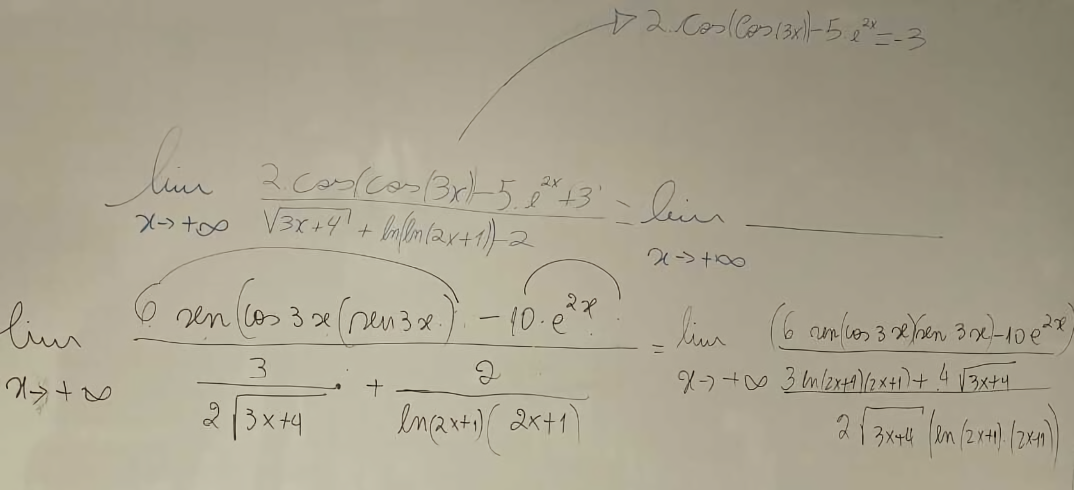 2.cos(cos(3x))-5.e^{2x}=-3
lim x→+∞ \frac{2.cos(cos(3x))-5.e^{2x}+3}{\sqrt{3x+4}+ln(ln(2x+1))-2} = lim x→+∞ ____
lim x→+∞ \frac{6 sen(cos 3x(sen 3x.)-10.e^{2x}}{\frac{3}{2\sqrt{3x+4}}+\frac{2}{ln(2x+1)(2x+1)}} = lim x→+∞ \frac{(6 sen(cos 3x)(sen 3x)-10e^{2x}}{\frac{3 ln(2x+1)(2x+1)+4\sqrt{3x+4}}{2\sqrt{3x+4}(ln(2x+1).(2x+1))}}